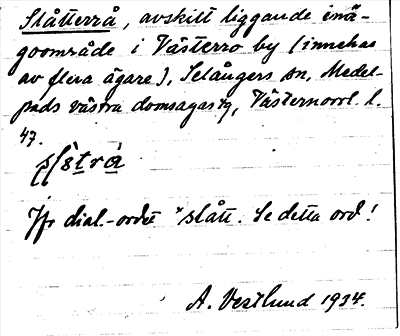 Slåtterrå, avskilt liggande inä-
goområde i Västerro by (innehas
av flera ägare), Selångers sn, Medel-
pads västra domsagas tg, Västernorrl. l.
47.
Jfr dial.-ordet "slått. Se detta ord!
A. Vestlund 1934.